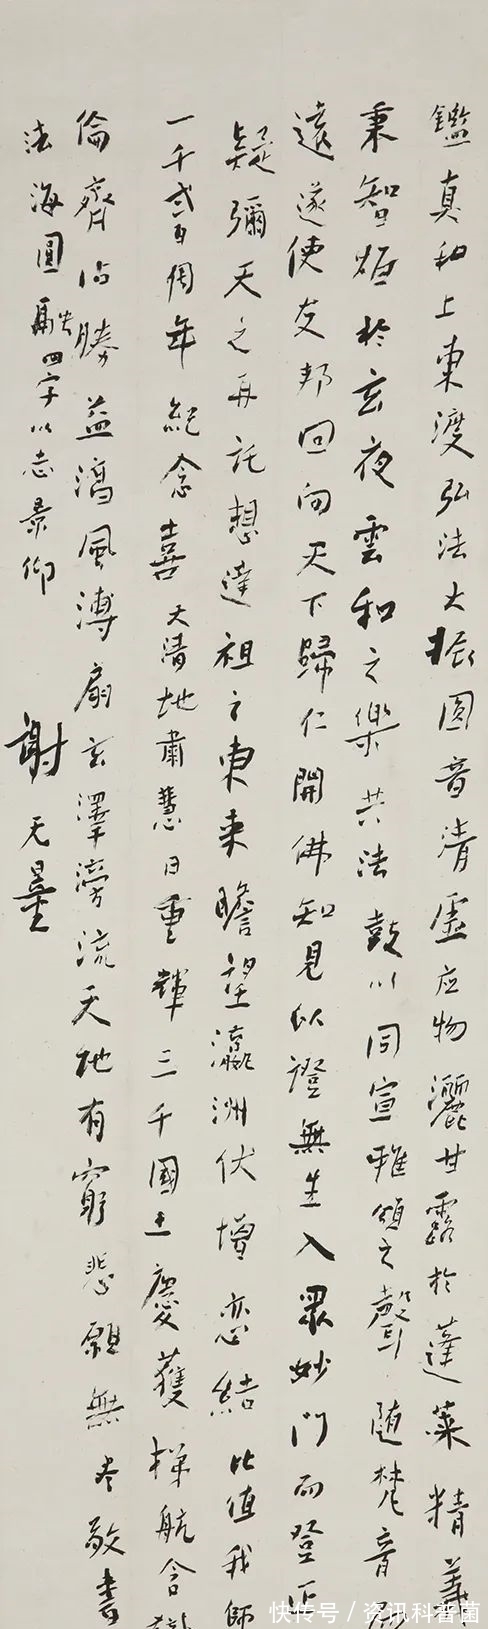 鑑真和上東渡弘法大振圓音清虛应物灑甘露於蓬萊精義
秉智炬於玄夜雲和之樂共法鼓以同宣雅頌之聲随梵音
遠遂使友邦回向天下歸仁開佛知見以證無生入眾妙門而登正
疑彌天之再託想達祖之東来瞻望瀛洲伏增恋結比值我師
一千弍百周年紀念喜天清地肅慧日重輝三千國土慶獲梯航含
倫齊沾勝益濤風溥扇玄澤滂流天地有窮悲願無尽敬書
法海圓融四字以志景仰
謝无量
快传号/资讯科普菌